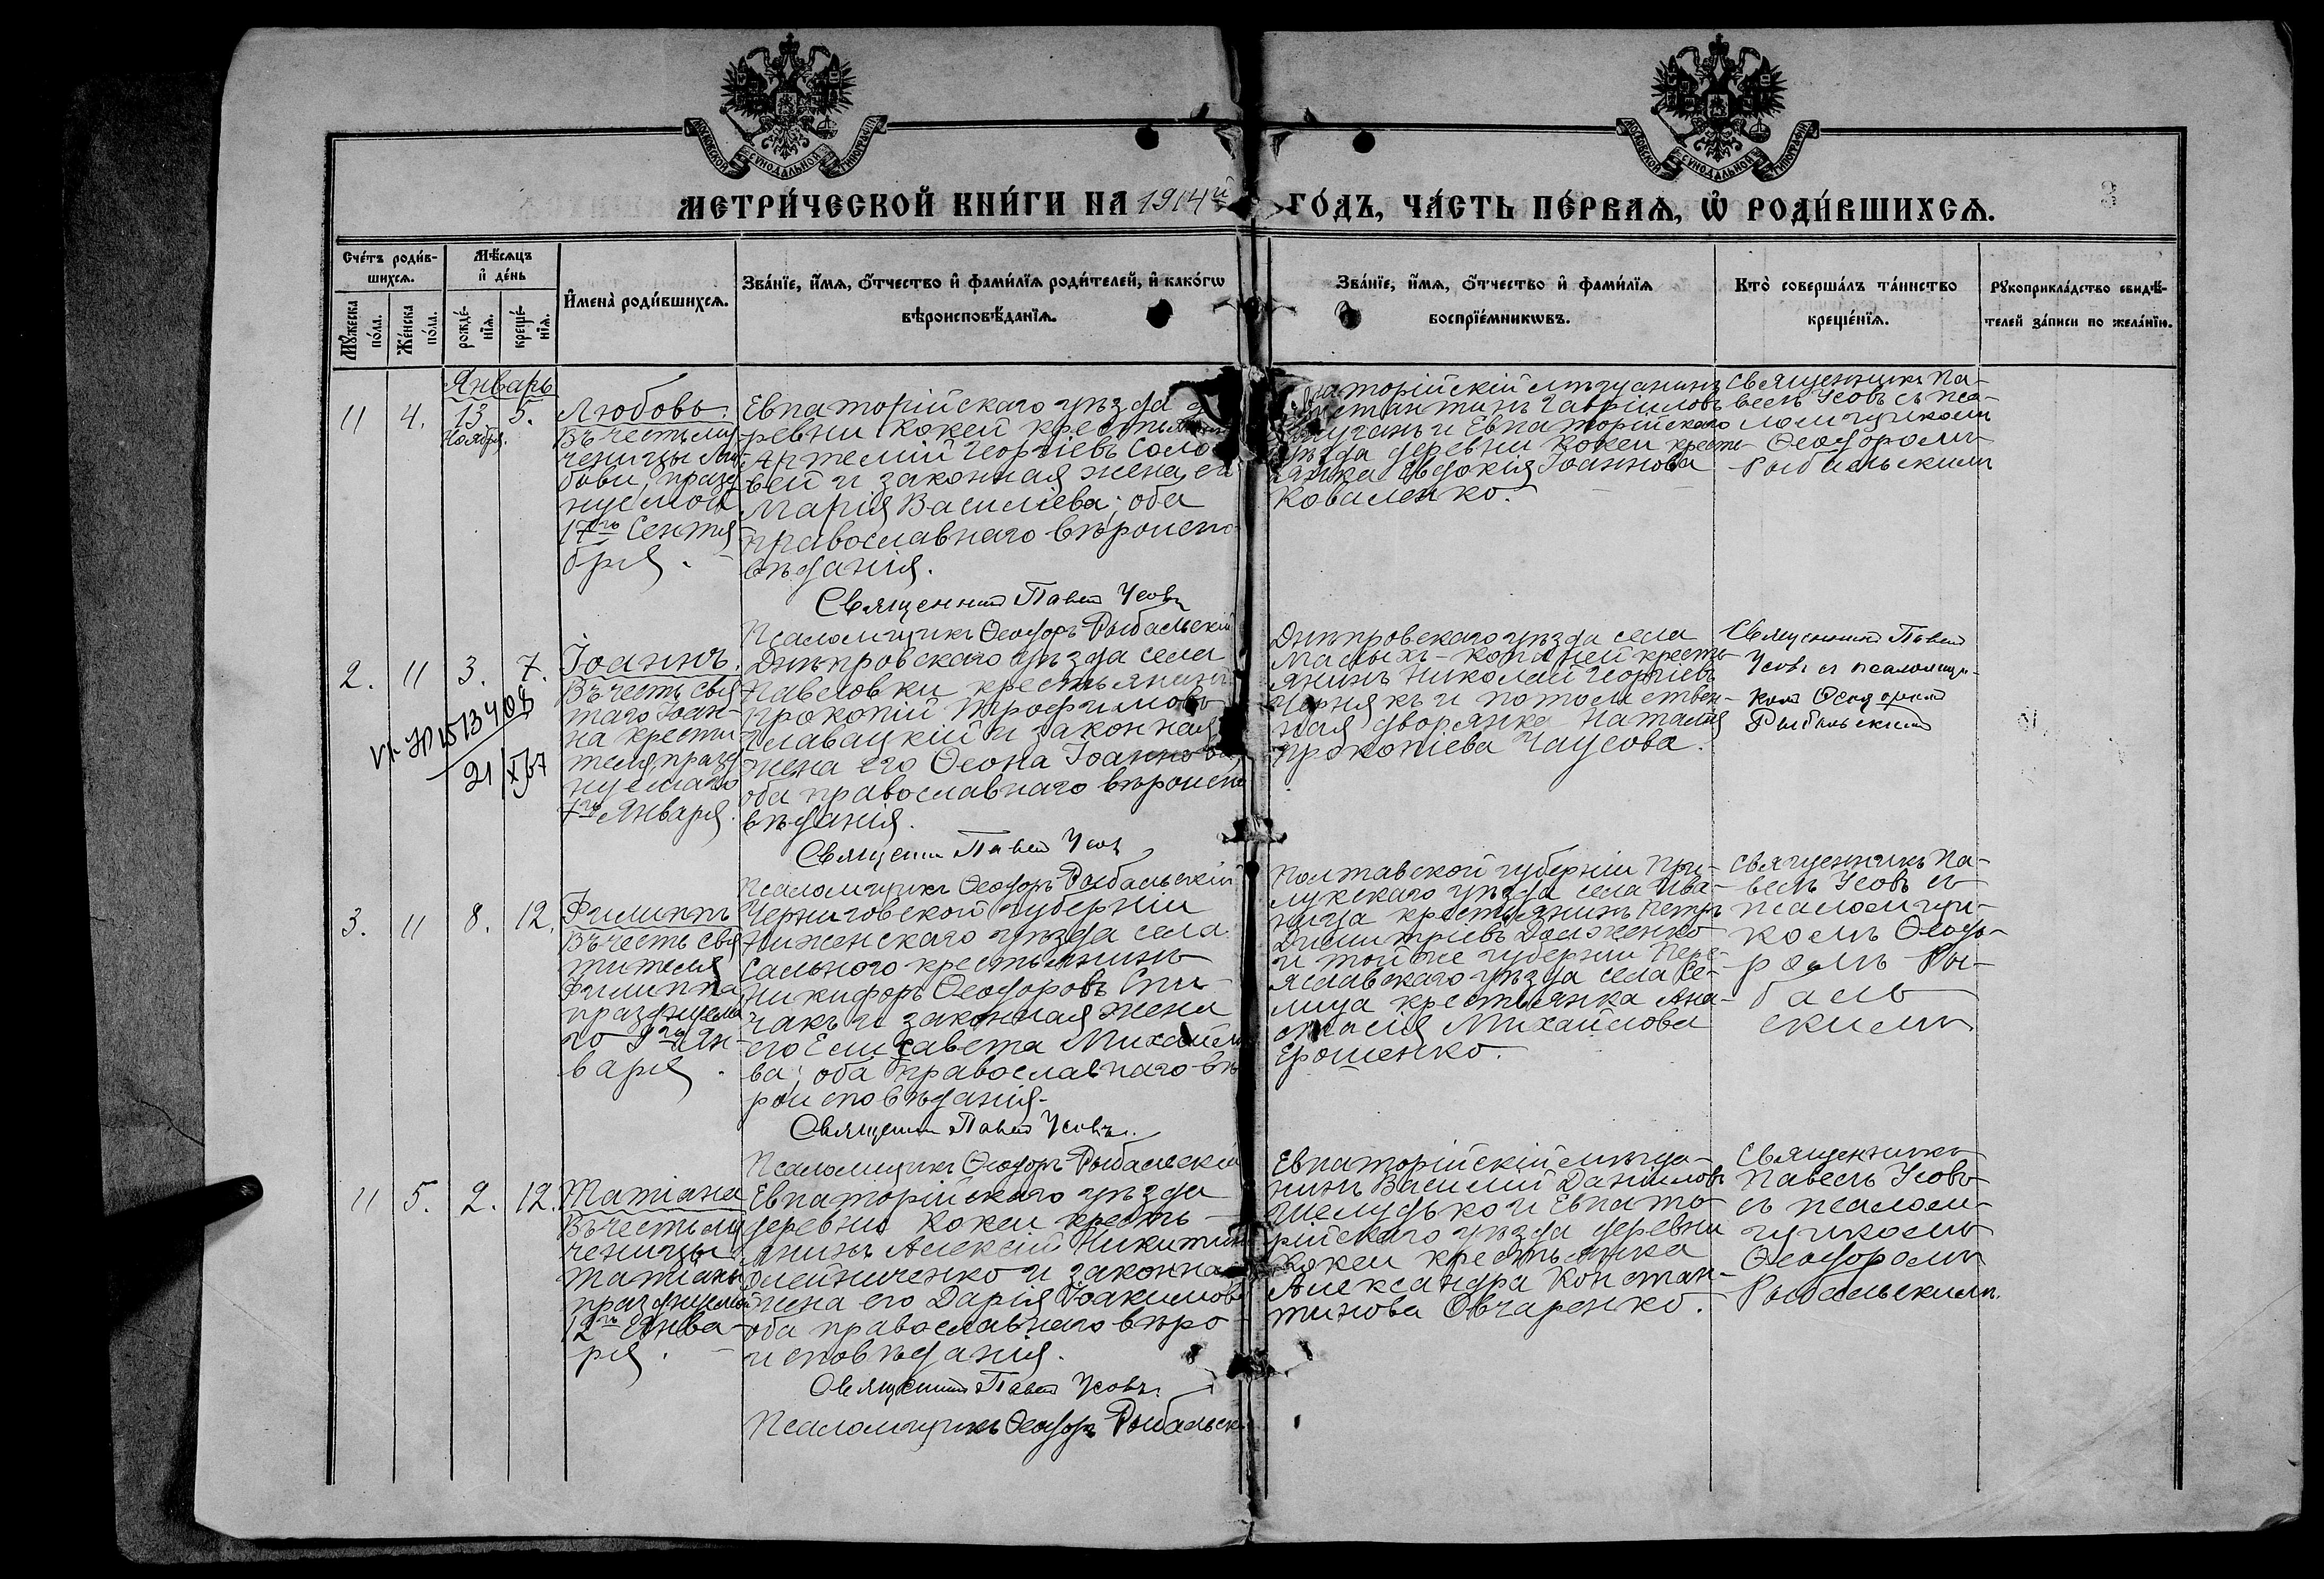 МОСКОВСКОЙ СѴНОДАЛЬНОЙ ТИПОГРАФІИ
МОСКОВСКОЙ СѴНОДАЛЬНОЙ ТИПОГРАФІИ
МЕТРИ́ЧЕСКОЙ КНИ́ГИ НА 1914й ГО́ДЪ, ЧА́СТЬ ПЕ́РВАѦ, Ѡ҆ РОДИ́ВШИХСѦ.
3
Сче́тъ роди́в-
шихсѧ.
Мꙋ́жеска по́ла.
Же́нска по́ла.
Мѣ́сѧцъ
и҆ де́нь
рожде́-
нїѧ.
креще́-
нїѧ.
И҆мена̀ роди́вшихсѧ.
Зва́нїе, и҆́мѧ, ѻ҆́тчество и҆ фами́лїѧ роди́телей, и҆ како́гѡ
вѣроисповѣ́данїѧ.
Зва́нїе, и҆́мѧ, ѻ҆́тчество и҆ фами́лїѧ
воспрїе́мникѡвъ.
Кто̀ соверша́лъ та́инство
креще́нїѧ.
Рꙋкоприкла́дство свидѣ́-
телей за́писи по жела́нїю.
Январь
11 4. 13 5.
Ноября.
Любовь.
Въ честь му
ченицы Лю
бови, празд
нуемой
17го Сентя
бря.
Евпаторійскаго уѣзда де
ревни Кокей крестьянинъ
Артемій Георгіевъ Соло
вей и законная жена его
Марія Василіева; оба
православнаго вѣроиспо
вѣданія.
Священникъ Павелъ Усовъ
Псаломщикъ Ѳеодоръ Рыбальскій
Евпаторійскій мѣщанинъ
Константинъ Гавріиловъ
и Евпаторійскаго
уѣзда деревни Кокеи кресть
янка Евдокія Іоаннова
Коваленко.
Священникъ Па-
велъ Усовъ съ пса-
ломщикомъ
Ѳеодоромъ
Рыбальскимъ
2. 11 3. 7.
VI-ЯР 513408
21/X 57
Іоаннъ.
Въ честь свя
таго Іоан-
на крести
теля празд
нуемаго
7го Января.
Днѣпровскаго уѣзда села
Павловки крестьянинъ
Прокопій Трофимовъ
Главацкій и законная
жена его Ѳеона Іоаннова
оба православнаго вѣроиспо
вѣданія.
Священникъ Павелъ Усовъ
Псаломщикъ Ѳеодоръ Рыбальскій
Днѣпровскаго уѣзда села
Малыхъ-Копаней кресть
янинъ Николай Георгіевъ
Чернякъ и потомствен-
ная дворянка Наталія
Прокопіева Чаусова.
Священникъ Павелъ
Усовъ съ псаломщи-
комъ Ѳеодоромъ
Рыбальскимъ
3. 11 8. 12.
Филиппъ
Въ честь свя
тителя
Филиппа
празднуема
го 9го Ян-
варя.
Черниговской губерніи
Нѣженскаго уѣзда села
Сального крестьянинъ
Никифоръ Ѳеодоровъ Спи-
чакъ и законная жена
его Елисавета Михайло
ва; оба православнаго вѣ
роисповѣданія.
Священникъ Павелъ Усовъ.
Псаломщикъ Ѳеодоръ Рыбальскій
Полтавской губерніи При-
лукскаго уѣзда села Ива-
ница крестьянинъ Петръ
Димитріевъ Долженко
и той же губерніи Пере-
яславскаго уѣзда села Се-
мица крестьянка Ана-
стасія Михайлова
Ерошенко.
Священникъ Па-
велъ Усовъ съ
псаломщи-
комъ Ѳеодо-
ромъ Ры-
баль
скимъ
11 5. 2. 12.
Татіана
Въ честь му
ченицы
Татіаны
празднуемой
12го Янва-
ря.
Евпаторійскаго уѣзда
деревни Кокеи кресть-
янинъ Алексій Никитинъ
Олейниченко и законная
жена его Дарія Іоакимова
оба православнаго вѣро
исповѣданія.
Священникъ Павелъ Усовъ.
Псаломщикъ Ѳеодоръ Рыбальск
Евпаторійскій мѣща-
нинъ Василій Даниловъ
Шелудько и Евпато-
рійскаго уѣзда деревни
Кокеи крестьянка
Александра Констан-
тинова Овчаренко.
Священникъ
Павелъ Усовъ
съ псалом-
щикомъ
Ѳеодоромъ
Рыбальскимъ.